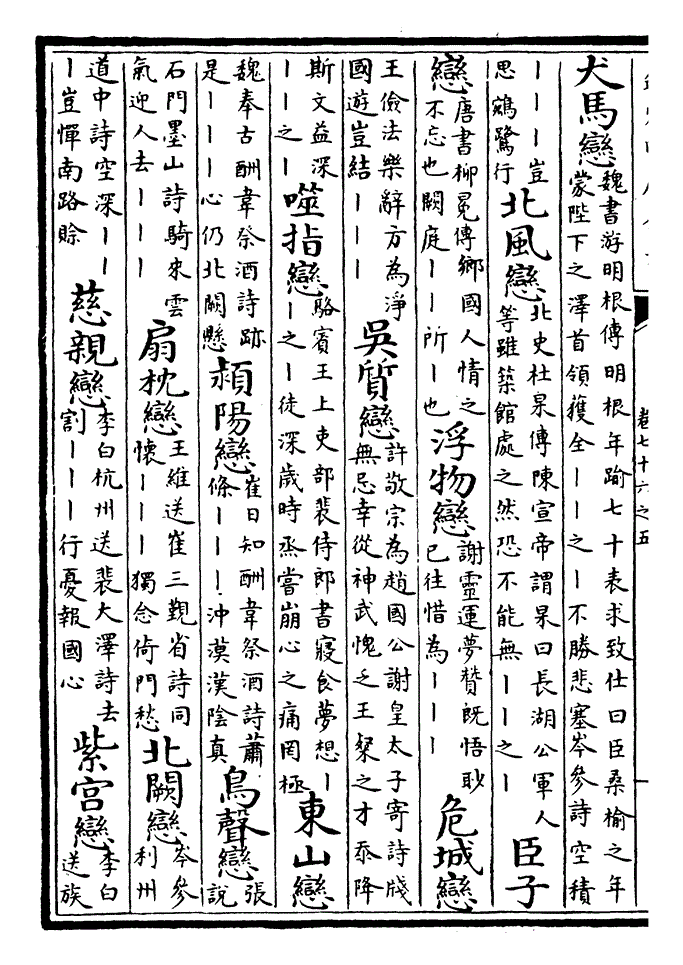 卷七十六之五
犬馬戀
魏書游明根傳明根年踰七十表求致仕曰臣桑榆之年
蒙陛下之澤首領獲全丨丨之丨不勝悲塞岑參詩空積
丨丨丨豈
思鵷鷺行
北風戀
北史杜杲傳陳宣帝謂杲曰長湖公軍人
等雖築館處之然恐不能無丨丨之丨
臣子
戀
唐書柳冕傳鄉國人情之
不忘也闕庭丨丨所丨也
浮物戀
謝靈運夢贊既悟眇
已往惜為丨丨丨
危城戀
王儉法樂辭方為淨
國遊豈結丨丨丨
吳質戀
許敬宗為趙國公謝皇太子寄詩牋
無忌幸從神武愧乏王粲之才忝降
斯文益深
丨丨之丨
噬指戀
駱賓王上吏部裴侍郎書寢食夢想丨
丨之丨徒深歲時烝嘗崩心之痛罔極
東山戀
魏奉古酬韋祭酒詩跡
是丨丨丨心仍北闕懸
潁陽戀
崔日知酬韋祭酒詩蕭
條丨丨丨沖漠漢陰真
鳥聲戀
張
說
石門墨山詩騎來雲
氣迎人去丨丨丨
扇枕戀
王維送崔三覲省詩同
懷丨丨丨獨念倚門愁
北闕戀
岑參
利州
道中詩空深丨丨
丨豈憚南路賒
慈親戀
李白杭州送裴大澤詩去
割丨丨丨行憂報國心
紫宮戀
李白
送族